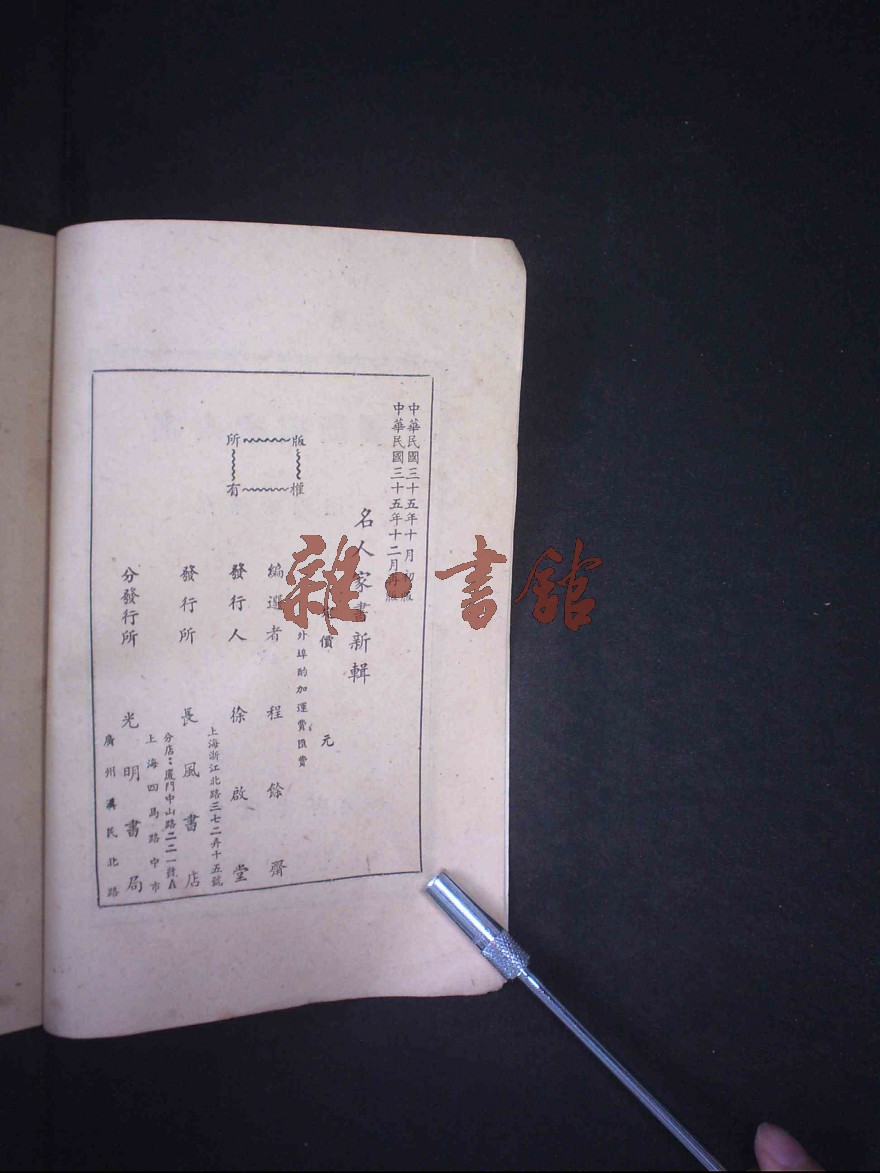 中華民國三十五年十月初版
中華民國三十五年十二月再版
名人家書新輯
價 元
外埠酌加運費匯費
編選者 程餘齋
發行人 徐啟堂
上海浙江北路三七二弄十五號
發行所 長風書店
分店：廈門中山路二二一號A
上海四馬路中市
分發行所 光明書局
廣州漢民北路
版權所有
雜·書館